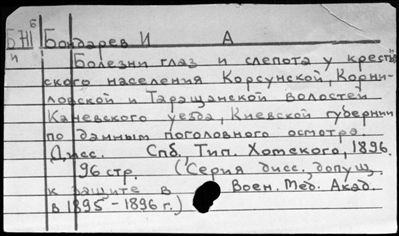 БЖ
6
и
Бондарев И А
Болезни глаз и слепота у крестьян
ского населения Корсунской, Корни-
ловской и Таращанской волостей
Каневского уезда, Киевской губернии
по данным поголовного осмотра.
Дисс. Спб, Тип. Хотского, 1896.
96 стр. (Серия дисс., допущ.
к защите в Воен. Мед. Акад.
в 1895-1896 г.)